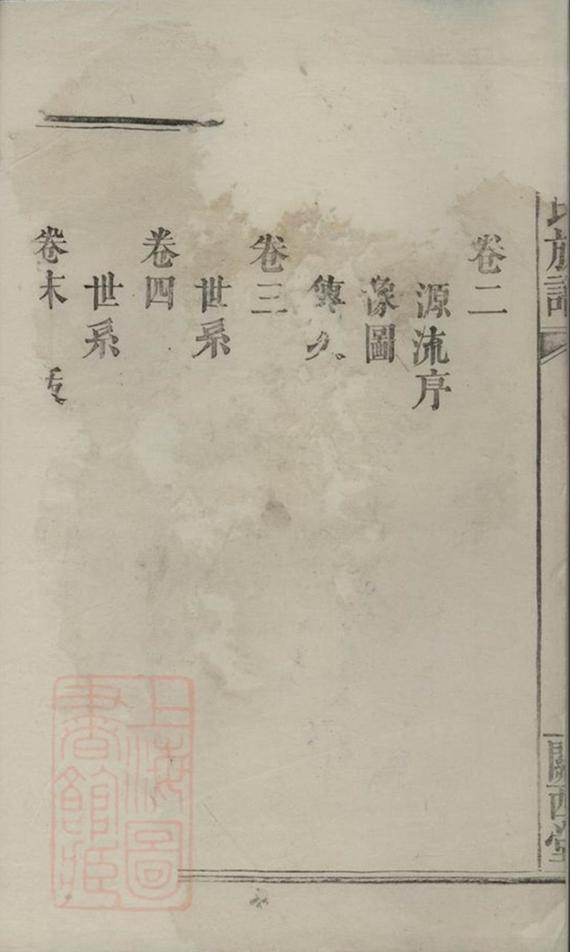 氏族譜
關西堂
卷二
源流序
像圖
傳
卷三
世系
卷四
世系
卷末
上海圖書館藏